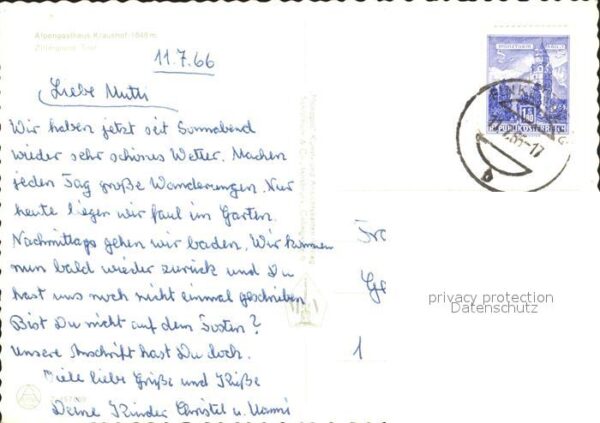 Alpengasthaus Kraushof 1046 m
Zillergrund Tirol
11.7.66
Liebe Mutti
Wir haben jetzt seit Sonnabend
wieder sehr schönes Wetter. Machen
jeden Tag große Wanderungen. Nur
heute liegen wir faul im Garten.
Nachmittags gehen wir baden. Wir kommen
nun bald wieder zurück und Du
hast uns noch nicht einmal geschrieben
Bist Du nicht auf dem Posten?
unsere Anschrift hast Du doch.
Viele liebe Grüße und Küße
Deine Kinder Christel u. Hanni
REPUBLIK ÖSTERREICH
Fr
Ge
1
privacy protection
Datenschutz